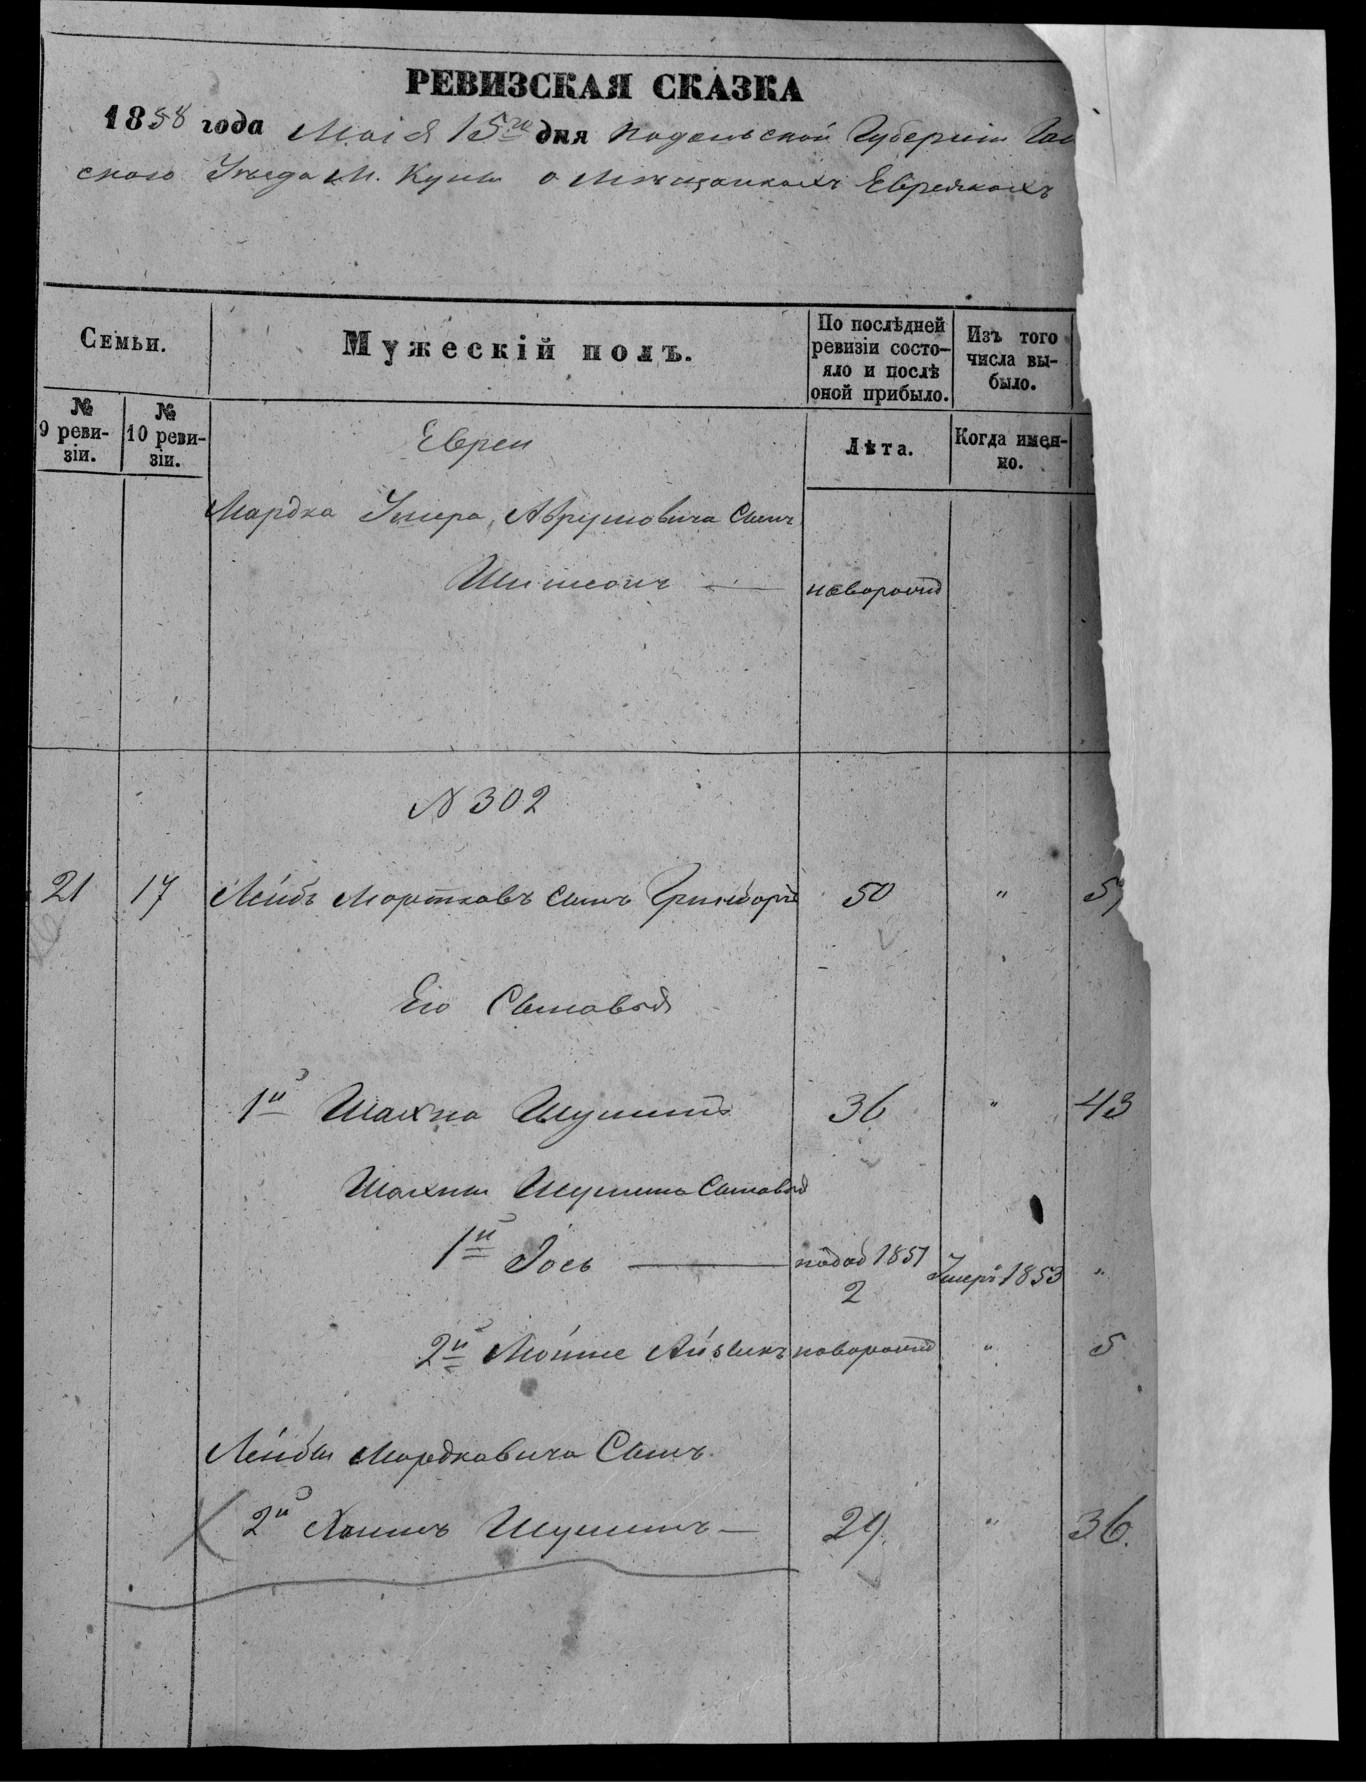 РЕВИЗСКАЯ СКАЗКА
1858 года Маія 15го дня Подольской Губерніи Гай
ского Уезда М. Куны о Мѣщанахъ Евреяхъ
Семьи.
Мужескій полъ.
По послѣдней ревизіи состо-
яло и послѣ
оной прибыло.
Изъ того
числа вы-
было.
№
9 реви-
зіи.
№
10 реви-
зіи.
Евреи
Лѣта.
Когда имен-
но.
Мардка Умера, Аврумовича Сынъ
Шимсонъ — новорожд
N 302
21 17 Лейбъ Мортковъ сынъ Гринборгъ 50 " 57
Его Сыновья
1й Шахна Шулимъ 36 " 43
Шахны Шулима Сыновья
1й Іось — 1851
2 Умеръ 1853 "
2й Мойше Айзикъ новорожд " 5
Лейбы Мордковича Сынъ
2й Хаимъ Шулимъ — 29. " 36.